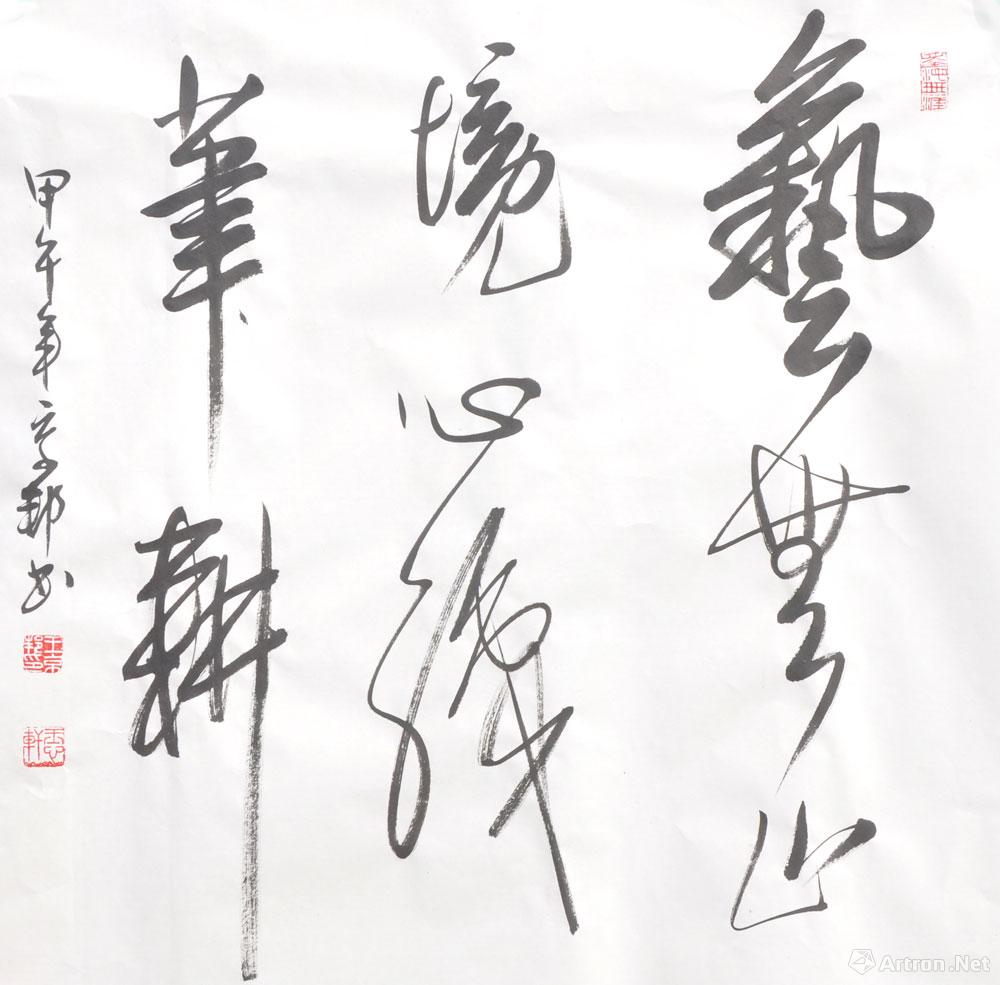 藝無止
境心織
筆耕
甲午年京邦书
Artron.Net